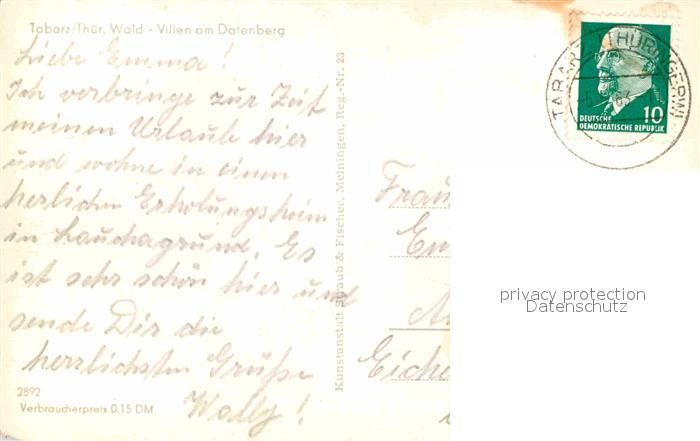 Tabarz/Thür. Wald - Villen am Datenberg
Liebe Emma!
Ich verbringe zur Zeit
meinen Urlaub hier
und wohne in einen
herlichen Erholungsheim
in Lauchagrund. Es
ist sehr schön hier und
sende Dir die
herzlichsten Grüße
Wally!
2892
Verbraucherpreis 0.15 DM
Kunstanstalt Straub & Fischer, Meiningen, Reg.-Nr. 23
THÜRINGERW
10
DEUTSCHE
DEMOKRATISCHE REPUBLIK
Frau
Eiche
privacy protection
Datenschutz